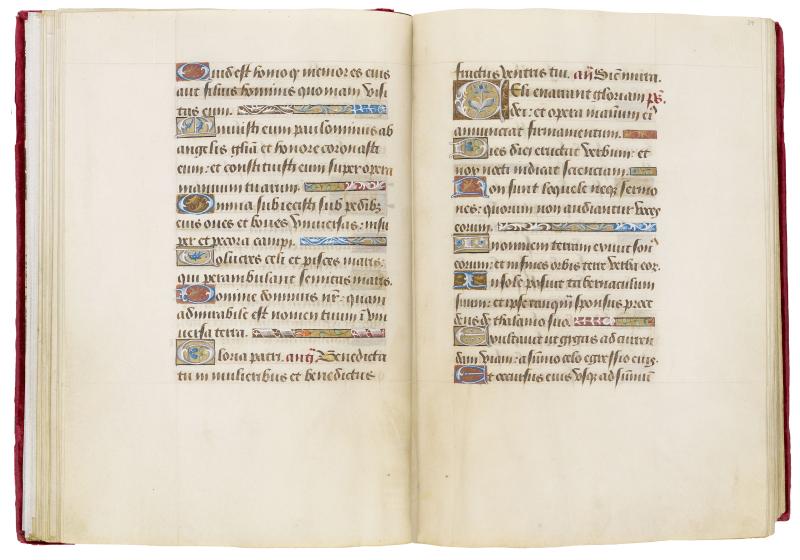 Quid est homo q̄ memor es eius
aut filius hominis quoniam visi
tas eum.
Minuisti eum paulominus ab
angelis gl̄ia et honore coronasti
eum: et constituisti eum super opera
manuum tuarum.
Omnia subiecisti sub pedibꝫ
eius oues et boues vniuersas: insu
per et pecora campi.
Volucres celi et pisces maris:
qui perambulant semitas maris.
Domine dominus nr̄: quam
admirabile est nomen tuum ī vni
uersa terra.
Gloria patri. antͥ Benedicta
tu in mulieribus et benedictus
fructus ventris tui. añ Sicut mirra.
Celi enarrant gloriam pͥs.
dei: et opera manuum eiꝰ
annunciat firmamentum.
Dies diei eructat verbum: et
nox nocti indicat scienciam.
Non sunt loquele neqꝫ sermo
nes: quorum non audiantur voces
eorum.
In omnem terram exiuit sonꝰ
eorum: et in fines orbis terre verba eor.
In sole posuit tabernaculum
suum: et ipse tanqͫ sponsus proce
dens de thalamo suo.
Exultauit vt gigas ad curren
dam viam: a sūmo celo egressio eius.
Et occursus eius vsqꝫ ad sūmū